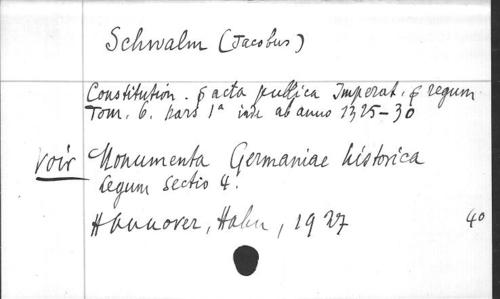 Schwalm (Jacobus)
Constitution. & acta publica Imperat. & regum
Tom. 6. pars 1a inde ab anno 1325-30
voir Monumenta Germaniae historica
Legum Sectio 4.
Hannover, Hahn, 1927 4o